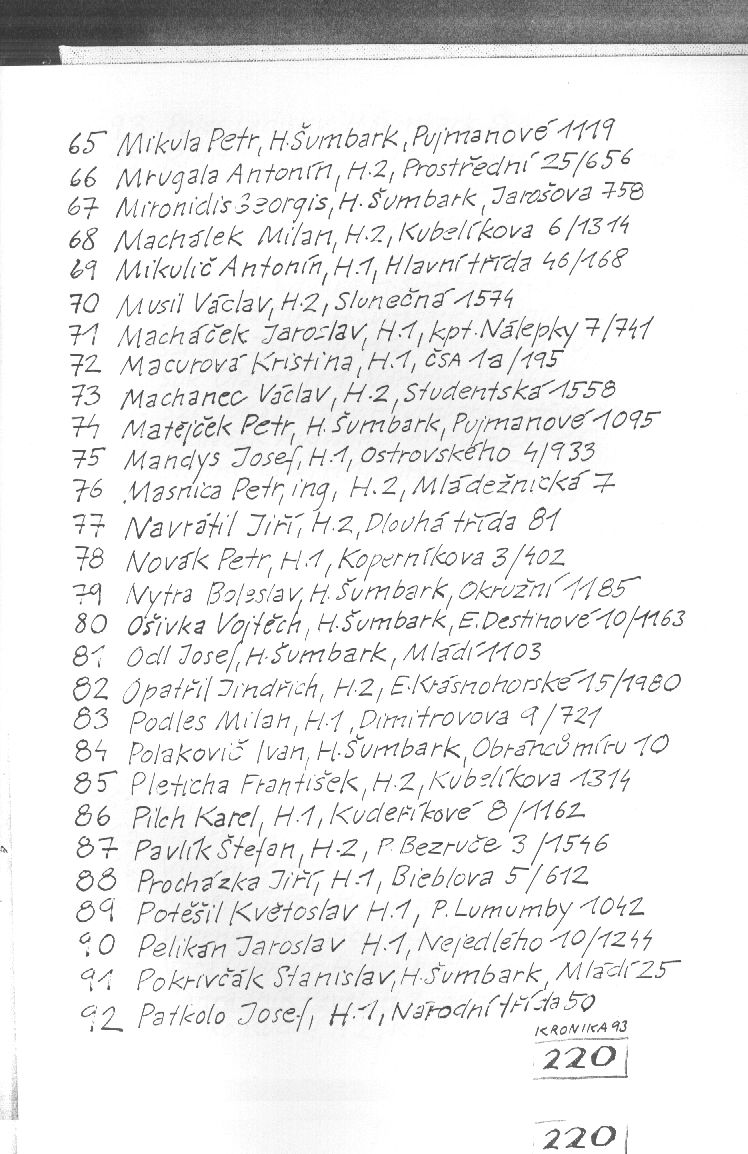 65 Mikula Petr, H.Šumbark, Pujmanové 1119
66 Mrugala Antonín, H.2, Prostřední 25/656
67 Mironidis Georgis, H.Šumbark, Jarošova 758
68 Machálek Milan, H.2, Kubelíkova 6/1314
69 Mikulič Antonín, H.1, Hlavní třída 46/168
70 Musil Václav, H.2, Slunečná 1574
71 Macháček Jaroslav, H.1, kpt.Nálepky 7/741
72 Macurová Kristina, H.1, ČSA 1a/195
73 Machanec Václav, H.2, Studentská 1558
74 Matějček Petr, H.Šumbark, Pujmanové 1095
75 Mandys Josef, H.1, Ostrovského 4/933
76 Masnica Petr, ing, H.2, Mládežnická 7
77 Navrátil Jiří, H.2, Dlouhá třída 81
78 Novák Petr, H.1, Koperníkova 3/402
79 Nytra Boleslav, H.Šumbark, Okružní 1185
80 Ošívka Vojtěch, H.Šumbark, E.Destinové 10/1163
81 Odl Josef, H.Šumbark, Mládí 1103
82 Opatřil Jindřich, H.2, E.Krásnohorské 15/1980
83 Podles Milan, H.1, Dimitrovova 9/721
84 Polakovič Ivan, H.Šumbark, Obránců míru 10
85 Pleticha František, H.2, Kubelíkova 1314
86 Pilch Karel, H.1, Kudeříkové 8/1162
87 Pavlík Štefan, H.2, P.Bezruče 3/1546
88 Procházka Jiří, H.1, Bieblova 5/612
89 Potěšil Květoslav H.1, P.Lumumby 1042
90 Pelikán Jaroslav H.1, Nejedlého 10/1244
91 Pokrivčák Stanislav, H.Šumbark, Mládí 25
92 Patkolo Josef, H.1, Národní třída 50
KRONIKA 93
220
220